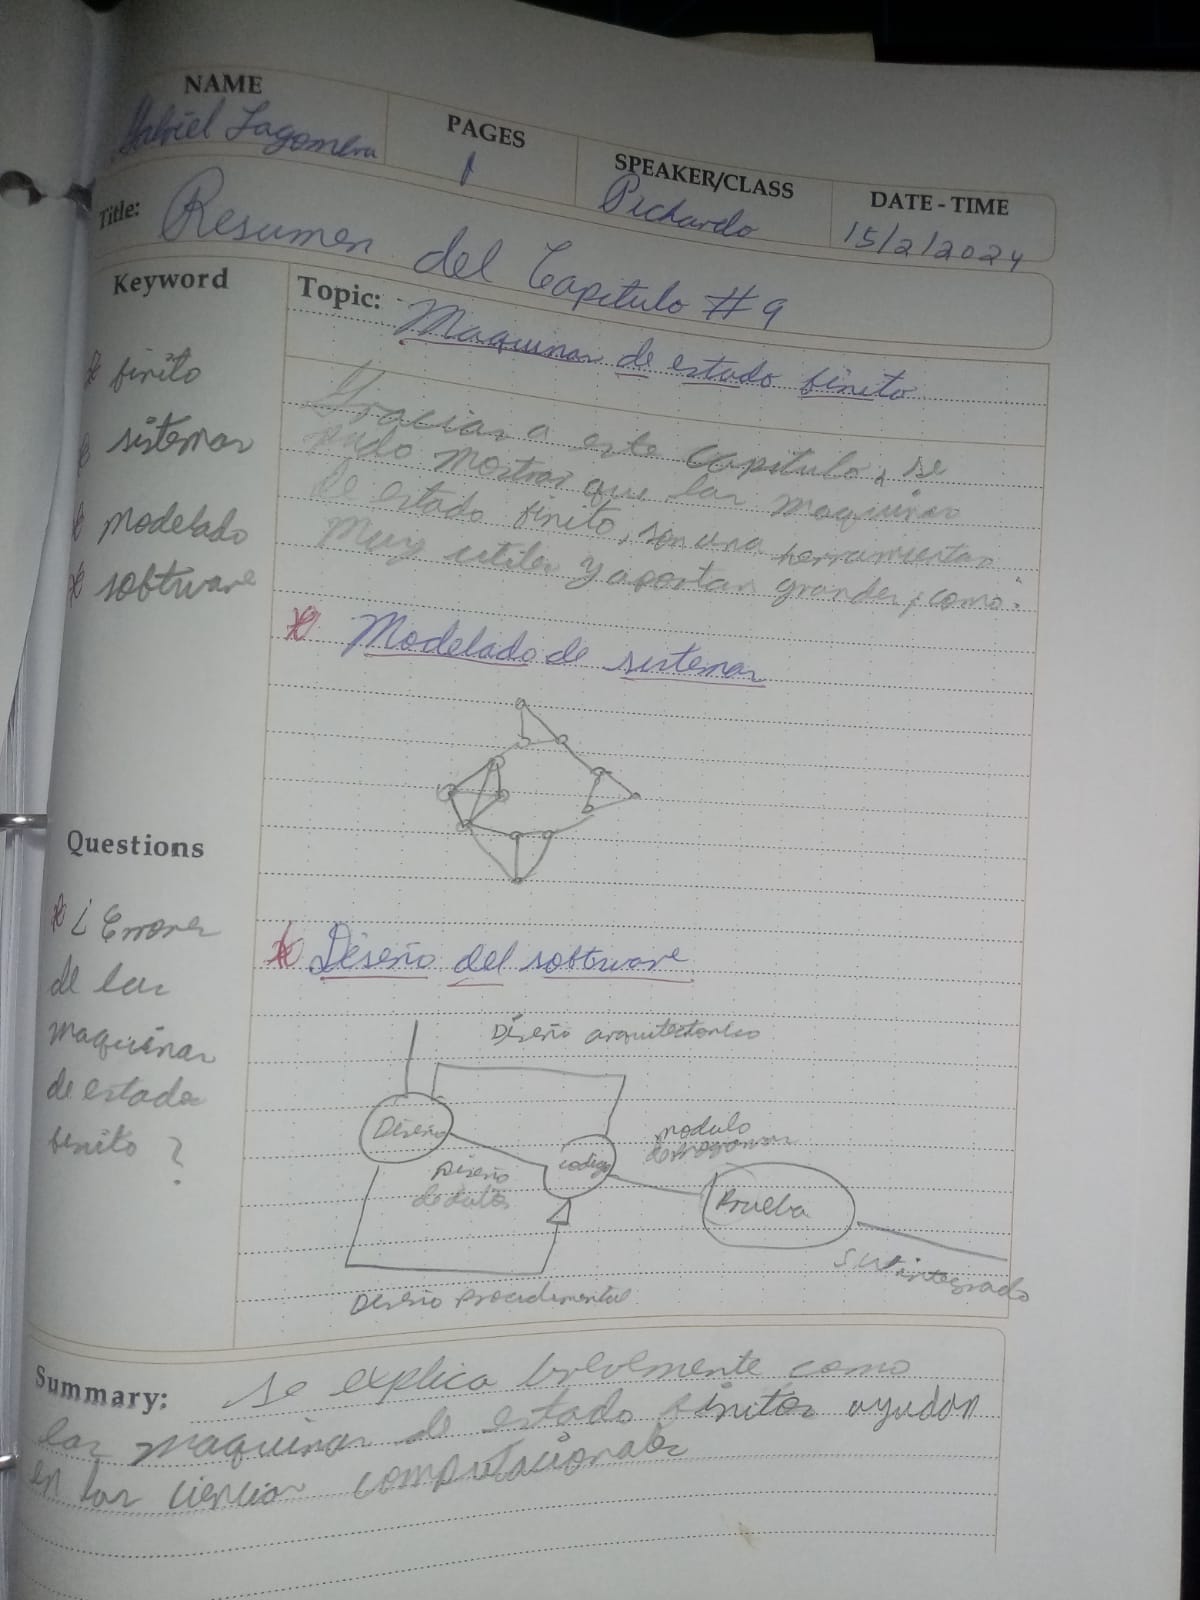 NAME
Gabriel Lagomera
PAGES
1
SPEAKER/CLASS
Pichardo
DATE - TIME
15/2/2024
Title: Resumen del Capitulo #9
Keyword
finito
sistemas
modelado
software
Topic: Maquinas de estado finito
Gracias a este capitulo, se
pudo mostrar que las maquinas
de estado finito, son una herramientas
muy utiles y aportan grandes, como:
Modelado de sistemas
Questions
¿Errores
de las
maquinas
de estado
finito?
Diseño del software
Diseño arquitectonico
Diseño
Diseño
de datos
codigo
modulo
de programas
Prueba
SW integrado
Diseño procedimental
Summary: se explica brevemente como
las maquinas de estado finitos ayudan
en las ciencias computacionales